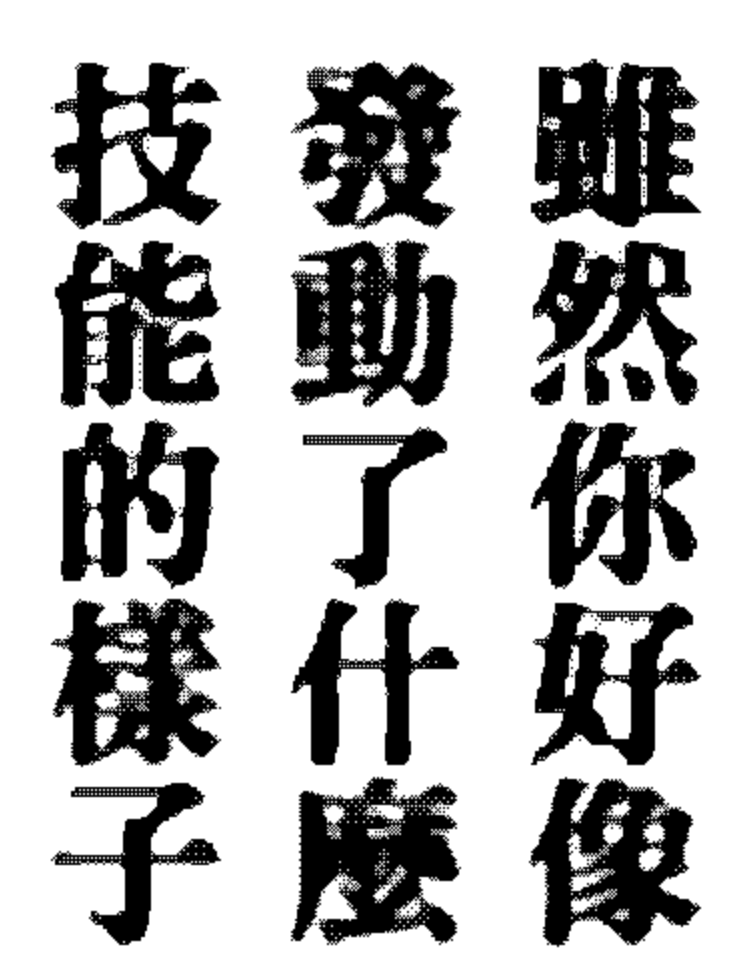 雖然你好像
發動了什麼
技能的樣子